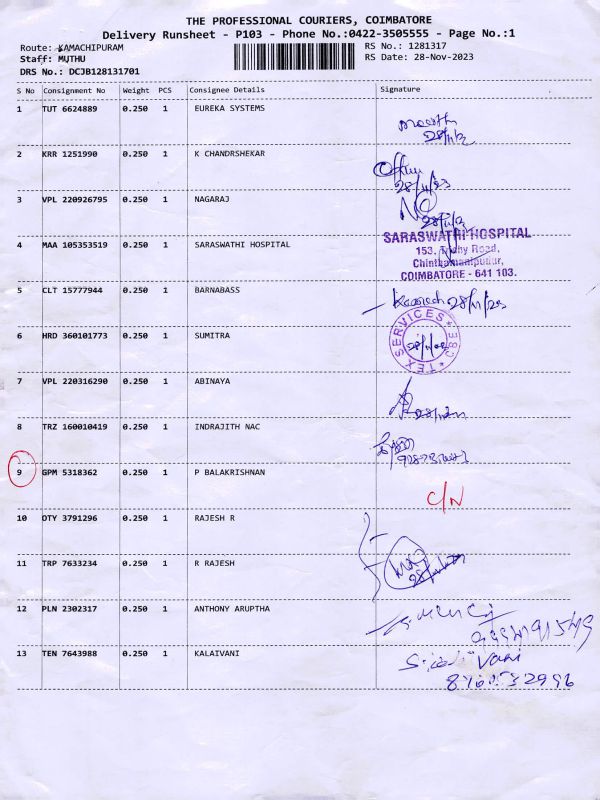 THE PROFESSIONAL COURIERS, COIMBATORE
Delivery Runsheet - P103 - Phone No.:0422-3505555 - Page No.:1
Route: KAMACHIPURAM
RS No.: 1281317
Staff: MUTHU
RS Date: 28-Nov-2023
DRS No.: DCJB128131701
S No Consignment No Weight PCS Consignee Details Signature
1 TUT 6624889 0.250 1 EUREKA SYSTEMS
2 KRR 1251990 0.250 1 K CHANDRSHEKAR
28/11/23
3 VPL 220926795 0.250 1 NAGARAJ
4 MAA 105353519 0.250 1 SARASWATHI HOSPITAL
SARASWATHI HOSPITAL
153, Trichy Road,
Chinthamanipudur,
COIMBATORE - 641 103.
5 CLT 15777944 0.250 1 BARNABASS
28/11/23
6 HRD 360101773 0.250 1 SUMITRA
TEX SERVICES CBE
7 VPL 220316290 0.250 1 ABINAYA
8 TRZ 160010419 0.250 1 INDRAJITH NAC
9 GPM 5318362 0.250 1 P BALAKRISHNAN
C/N
10 OTY 3791296 0.250 1 RAJESH R
11 TRP 7633234 0.250 1 R RAJESH
12 PLN 2302317 0.250 1 ANTHONY ARUPTHA
13 TEN 7643988 0.250 1 KALAIVANI
Vani